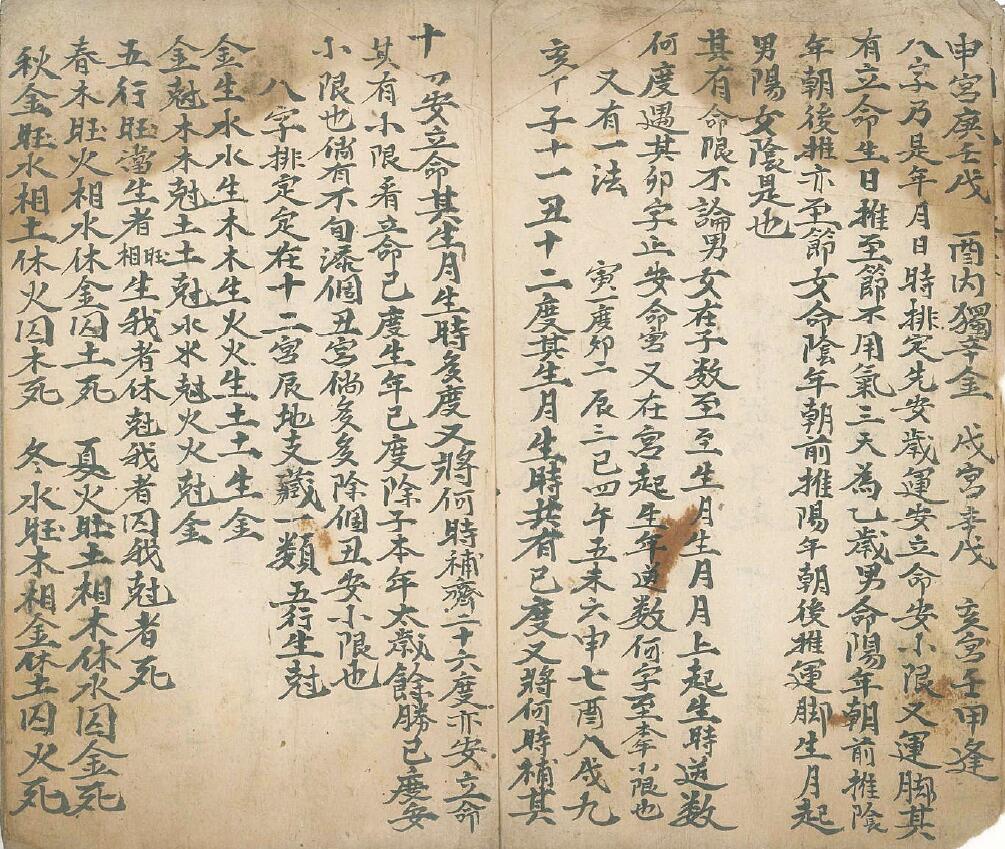 申宮庚壬戊 酉內獨辛金 戌宮辛戊 亥宮壬甲逢
八字乃是年月日時排定先安歲運安立命安小限又運脚其
有立命生日推至節不用氣三天為乙歲男命陽年朝前推陰
年朝後推亦至節女命陰年朝前推陽年朝後推運脚生月起
男陽女陰是也
其有命限不論男女在子数至至生月生月月上起生時送数
何度遇其卯字止安命宮又在宮起生年送数何字至本年小限也
又有一法 寅一度卯二辰三巳四午五未六申七酉八戌九
亥十子十一丑十二度其生月生時共有已度又將何時補其
十四安立命其生月生時多度又將何時補齊二十六度亦安立命
其有小限看立命已度生年已度除子本年太歲餘勝已度安
小限也倘有不旬添個丑宮倘多多除個丑安小限也
八字排定定在十二宮辰地支藏一類 五行生尅
金生水水生木木生火火生土土生金
金尅木木尅土土尅水水尅火火尅金
五行旺當生者相旺生我者休尅我者囚我尅者死
春木旺火相水休金囚土死 夏火旺土相木休水囚金死
秋金旺水相土休火囚木死 冬水旺木相金休土囚火死